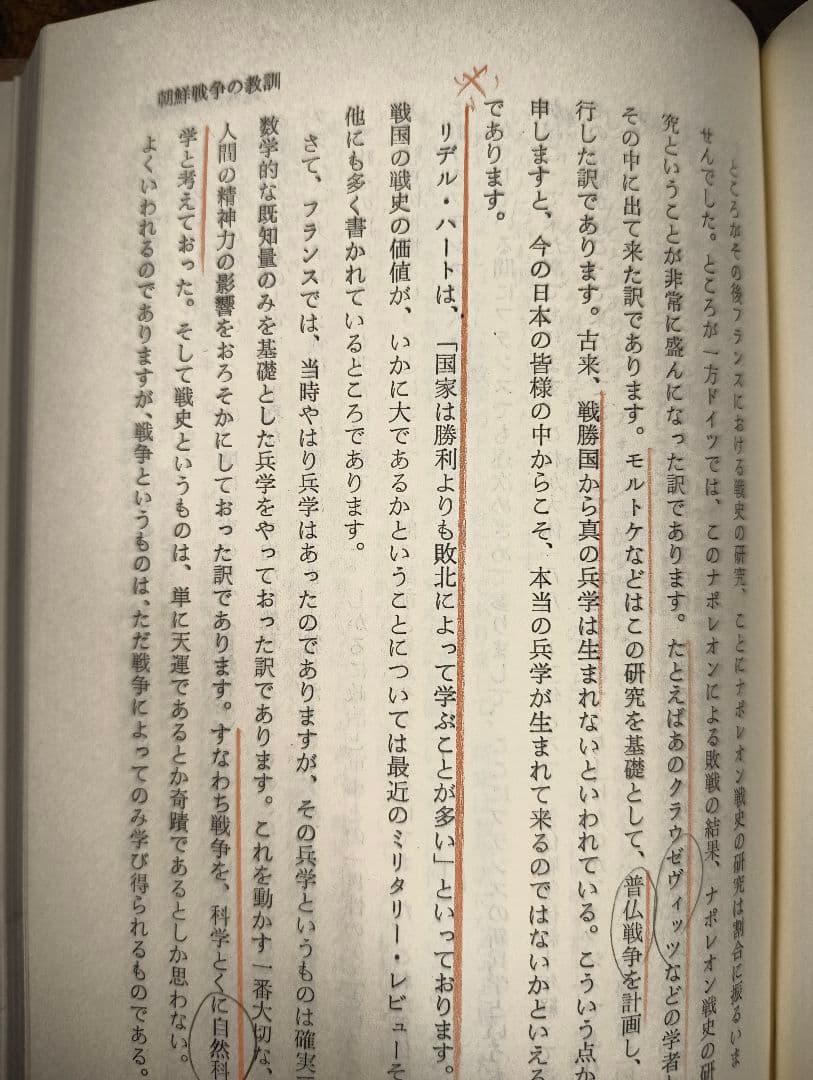 朝鮮戦争の教訓
ところがその後フランスにおける戦史の研究、ことにナポレオン戦史の研究は割合に振るいま
せんでした。ところが一方ドイツでは、このナポレオンによる敗戦の結果、ナポレオン戦史の研
究ということが非常に盛んになった訳であります。たとえばあのクラウゼヴィッツなどの学者
その中に出て来た訳であります。モルトケなどはこの研究を基礎として、普仏戦争を計画し、
行した訳であります。古来、戦勝国から真の兵学は生まれないといわれている。こういう点か
申しますと、今の日本の皆様の中からこそ、本当の兵学が生まれて来るのではないかといえる
であります。
リデル・ハートは、「国家は勝利よりも敗北によって学ぶことが多い」といっております。
戦国の戦史の価値が、いかに大であるかということについては最近のミリタリー・レビューそ
他にも多く書かれているところであります。
さて、フランスでは、当時やはり兵学はあったのでありますが、その兵学というものは確実
数学的な既知量のみを基礎とした兵学をやっておった訳であります。これを動かす一番大切な、
人間の精神力の影響をおろそかにしておった訳であります。すなわち戦争を、科学とくに自然科
学と考えておった。そして戦史というものは、単に天運であるとか奇蹟であるとしか思わない。
よくいわれるのでありますが、戦争というものは、ただ戦争によってのみ学び得られるものである。